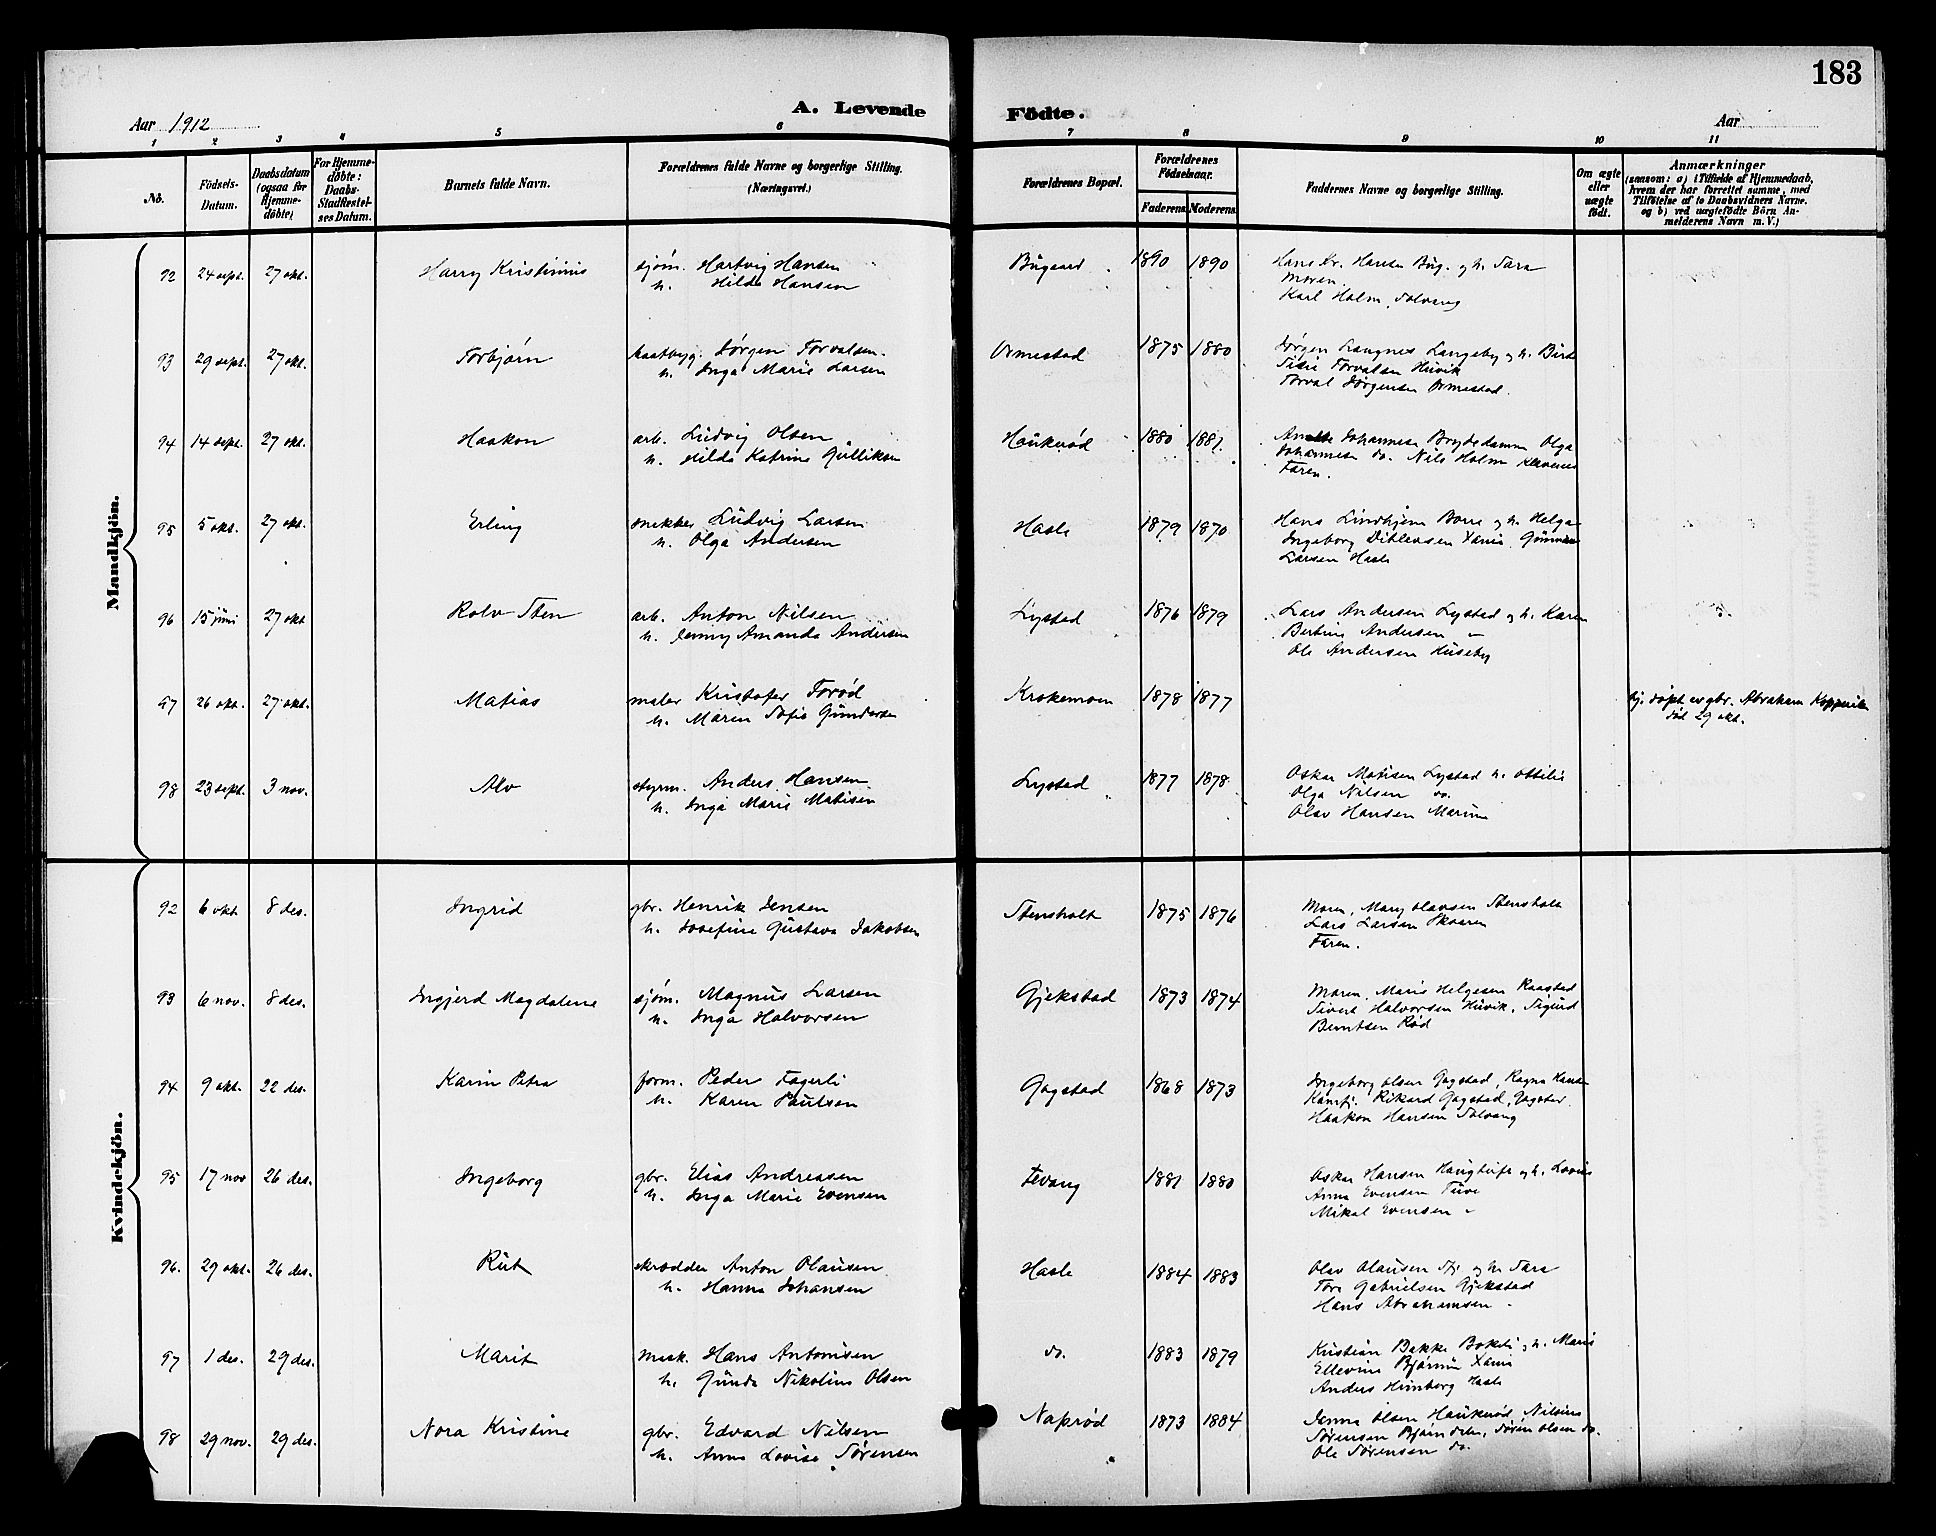 183
A. Levende Födte.
Aar 1912
Aar
1 2 3 4 5 6 7 8 9 10 11
No.
Födsels-Datum.
Daabsdatum (ogsaa for Hjemme-döbte)
For Hjemme-döbte: Daabs-Stadfæstel-ses Datum.
Barnets fulde Navn.
Forældrenes fulde Navne og borgerlige Stilling. (Næringsvei.)
Forældrenes Bopæl.
Forældrenes Födselsaar.
Faderens Moderens
Faddernes Navne og borgerlige Stilling.
Om ægte eller uægte födt.
Anmærkninger
(saasom: a) i Tilfælde af Hjemmedaab, hvem der har forrettet samme, med Tilföielse af to Daabsvidners Navne. og b) ved uægtefödte Börn An-melderens Navn m. V.)
Mandkjön.
92 24 sept. 27 okt. Harry Kristinius sjøm. Hartvig Hansen Bugaard 1890 1890 Hans Kr. Hansen Bug. og h. Sara
h. Hilda Hansen Moren.
Karl Holm, Solvang
93 29 sept. 27 okt. Torbjørn baatbyg. Jørgen Torvalsen Ormestad 1875 1880 Jørgen Langnes Langeby og h. Berte
h. Inga Marie Larsen Torvalsen Huvik
Torval Jørgensen Ormestad.
94 14 sept. 27 okt. Haakon arb. Ludvig Olsen Haukerød 1880 1881 Johannesen Brydedammen Olga
h. Hilda Katrine Gulliksen Johannesen do. Nils Holm Klavenes
Faren.
95 5 okt. 27 okt. Erling snekker Ludvig Larsen Hasle 1879 1870 Hans Lindhjem Borre og h. Helga
h. Olga Andersen Ingeborg Ditlevsen Gunnar
Larsen Hasle
96 15 juni 27 okt Rolv Sten arb. Anton Nilsen Lystad 1876 1879 Lars Andersen Lystad og h. Karen
h. Jenny Amanda Andersen Bertine Andersen "
Ole Andersen Huseby
97 26 okt. 27 okt. Matias maler Kristofer Torød Krokemoen 1878 1877 hj. døpt av gbr. Abraham
h. Maren Sofie Gundersen død 29 okt.
98 23 sept. 3 nov. Alv styrm. Anders Hansen Lystad 1877 1878 Oskar Matisen Lystad h. Ottilie
h. Inga Marie Matisen Olga Nilsen do.
Olav Hansen Marum
Kvindekjön.
92 6 okt 8 des. Ingrid gbr. Henrik Jensen Stensholt 1875 1876 Moren, Mary Olavsen Stensholt
h. Josefine Gustava Jakobsen Lars Larsen Skaaren
Faren.
93 6 nov. 8 des. Ingjerd Magdalene sjøm. Magnus Larsen Gjekstad 1873 1874 Moren, Marie Helgesen Raastad
h. Inga Halvorsen Sivert Halvorsen Huvik, Sigurd
Berntsen Rød
94 9 okt. 22 des. Karin Petra form. Peder Fagerli Gogstad 1868 1873 Ingeborg Olsen Gogstad, Ragna Hansen
h. Karen Paulsen Kamfj. Rikard Gogstad, Gogstad.
Haakon Hansen Solvang
95 17 nov 26 des. Ingeborg gbr. Elias Andreasen Fevang 1881 1880 Oskar Hansen Haugtuft og h. Lovise
h. Inga Marie Evensen Anna Evensen Tuve
Mikal Evensen "
96. 29 okt. 26 des. Rut skrædder Anton Olausen Hasle 1884 1883 Olav Olausen Sfj og h Sara
h. Hanna Johansen Tora Gabrielsen Gjekstad
Hans Abrahamsen "
97 1 des. 29 des. Marit mask. Hans Antonisen do. 1883 1879 Kristian Bakke Bakeli og h. Marie
h. Gunda Nikoline Olsen Ellevine Bjørnum
Anders Himberg Hasle
98 29 nov. 29 des. Nora Kristine gbr. Edvard Nilsen Napsrød 1873 1884 Jenna Olsen Haukerød, Nilsine
h. Anna Lovise Sørensen Sørensen Bjørndalen, Søren Olsen do.
Ole Sørensen do.